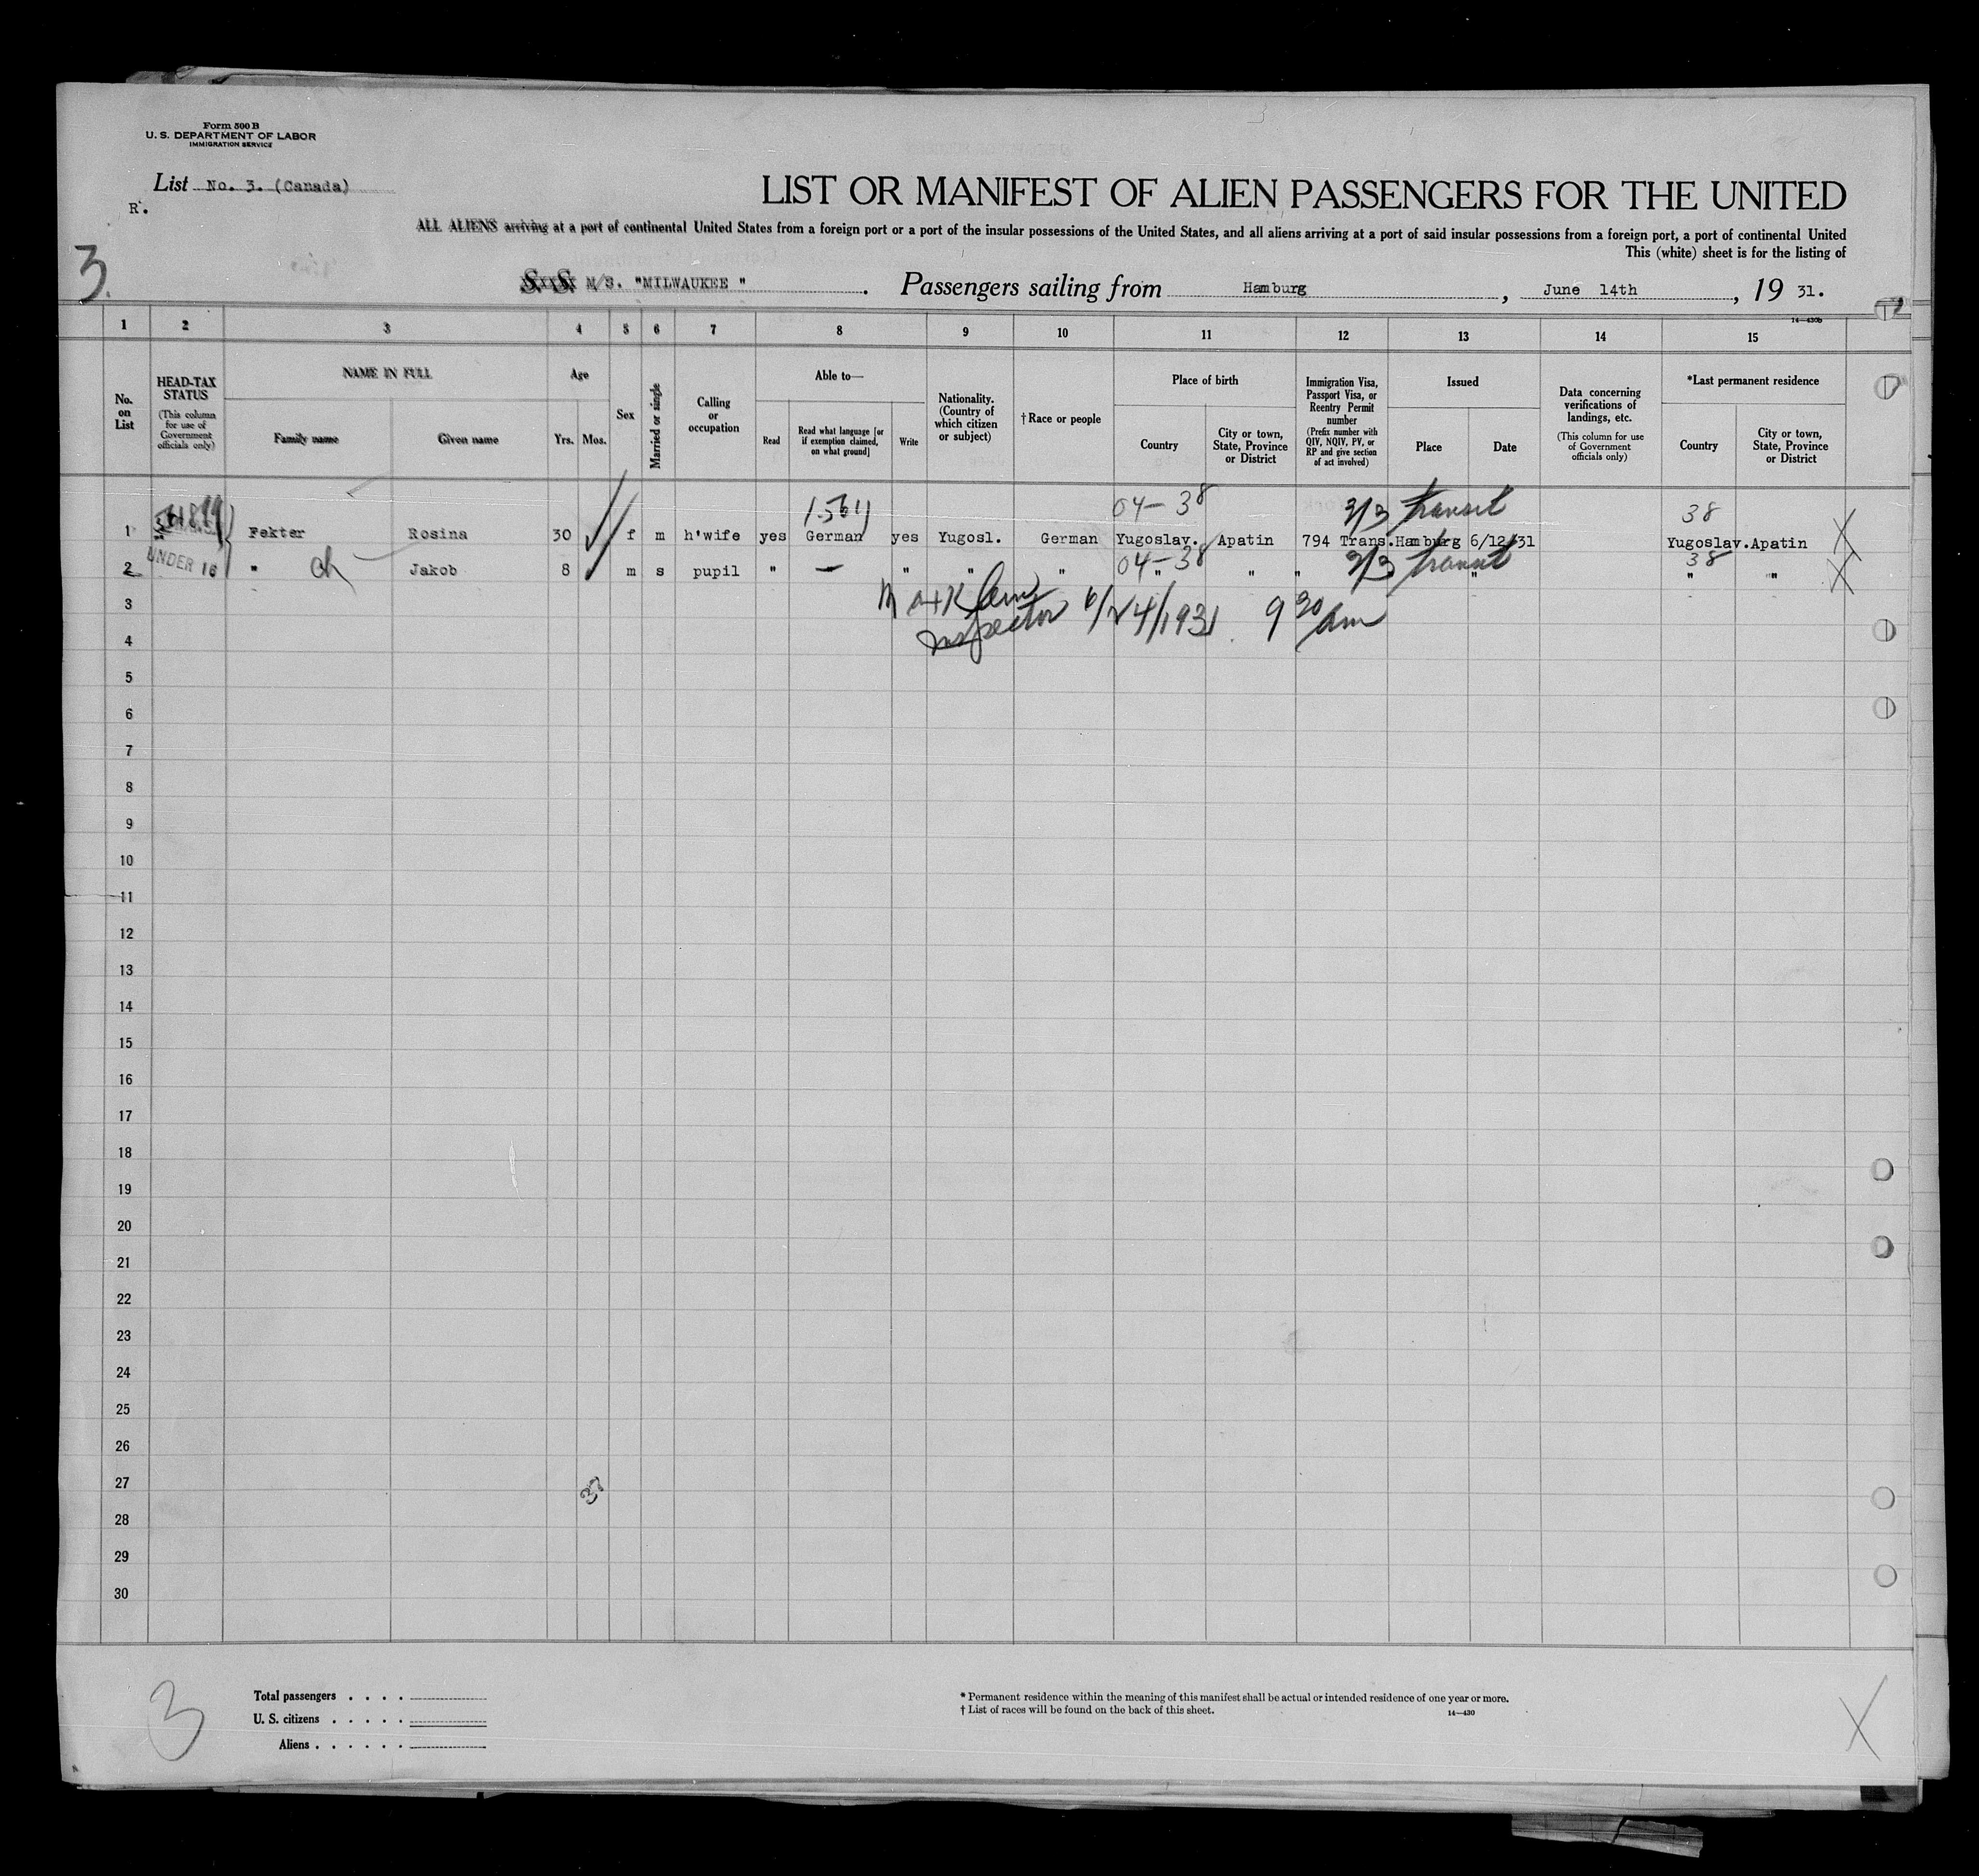 Form 500 B
U. S. DEPARTMENT OF LABOR
IMMIGRATION SERVICE
List No. 3. (Canada)
R.
3.
LIST OR MANIFEST OF ALIEN PASSENGERS FOR THE UNITED
ALL ALIENS arriving at a port of continental United States from a foreign port or a port of the insular possessions of the United States, and all aliens arriving at a port of said insular possessions from a foreign port, a port of continental United
This (white) sheet is for the listing of
S. S. M/S. "MILWAUKEE " . Passengers sailing from Hamburg , June 14th , 19 31.
14—430b
1 2 3 4 5 6 7 8 9 10 11 12 13 14 15
No. on List
HEAD-TAX STATUS
(This column for use of Government officials only)
NAME IN FULL
Family name
Given name
Age
Yrs.
Mos.
Sex
Married or single
Calling or occupation
Able to—
Read
Read what language [or if exemption claimed, on what ground]
Write
Nationality. (Country of which citizen or subject)
† Race or people
Place of birth
Country
City or town, State, Province or District
Immigration Visa, Passport Visa, or Reentry Permit number
(Prefix number with QIV, NQIV, PV, or RP and give section of act involved)
Issued
Place
Date
Data concerning verifications of landings, etc.
(This column for use of Government officials only)
*Last permanent residence
Country
City or town, State, Province or District
04-38 3/3 transit 38
1 Fekter Rosina 30 f m h'wife yes German yes Yugosl. German Yugoslav. Apatin 794 Trans.Hamburg 6/12/31 Yugoslav.Apatin
UNDER 16
04-38 3/3 transit 38
2 " ch Jakob 8 m s pupil " — " " " " " " " " "
3
Inspector 6/24/1931. 9 30 am
4
5
6
7
8
9
10
11
12
13
14
15
16
17
18
19
20
21
22
23
24
25
26
27
28
29
30
3
Total passengers . . . .
U. S. citizens . . . . .
Aliens . . . . . .
* Permanent residence within the meaning of this manifest shall be actual or intended residence of one year or more.
† List of races will be found on the back of this sheet.
14—430
X